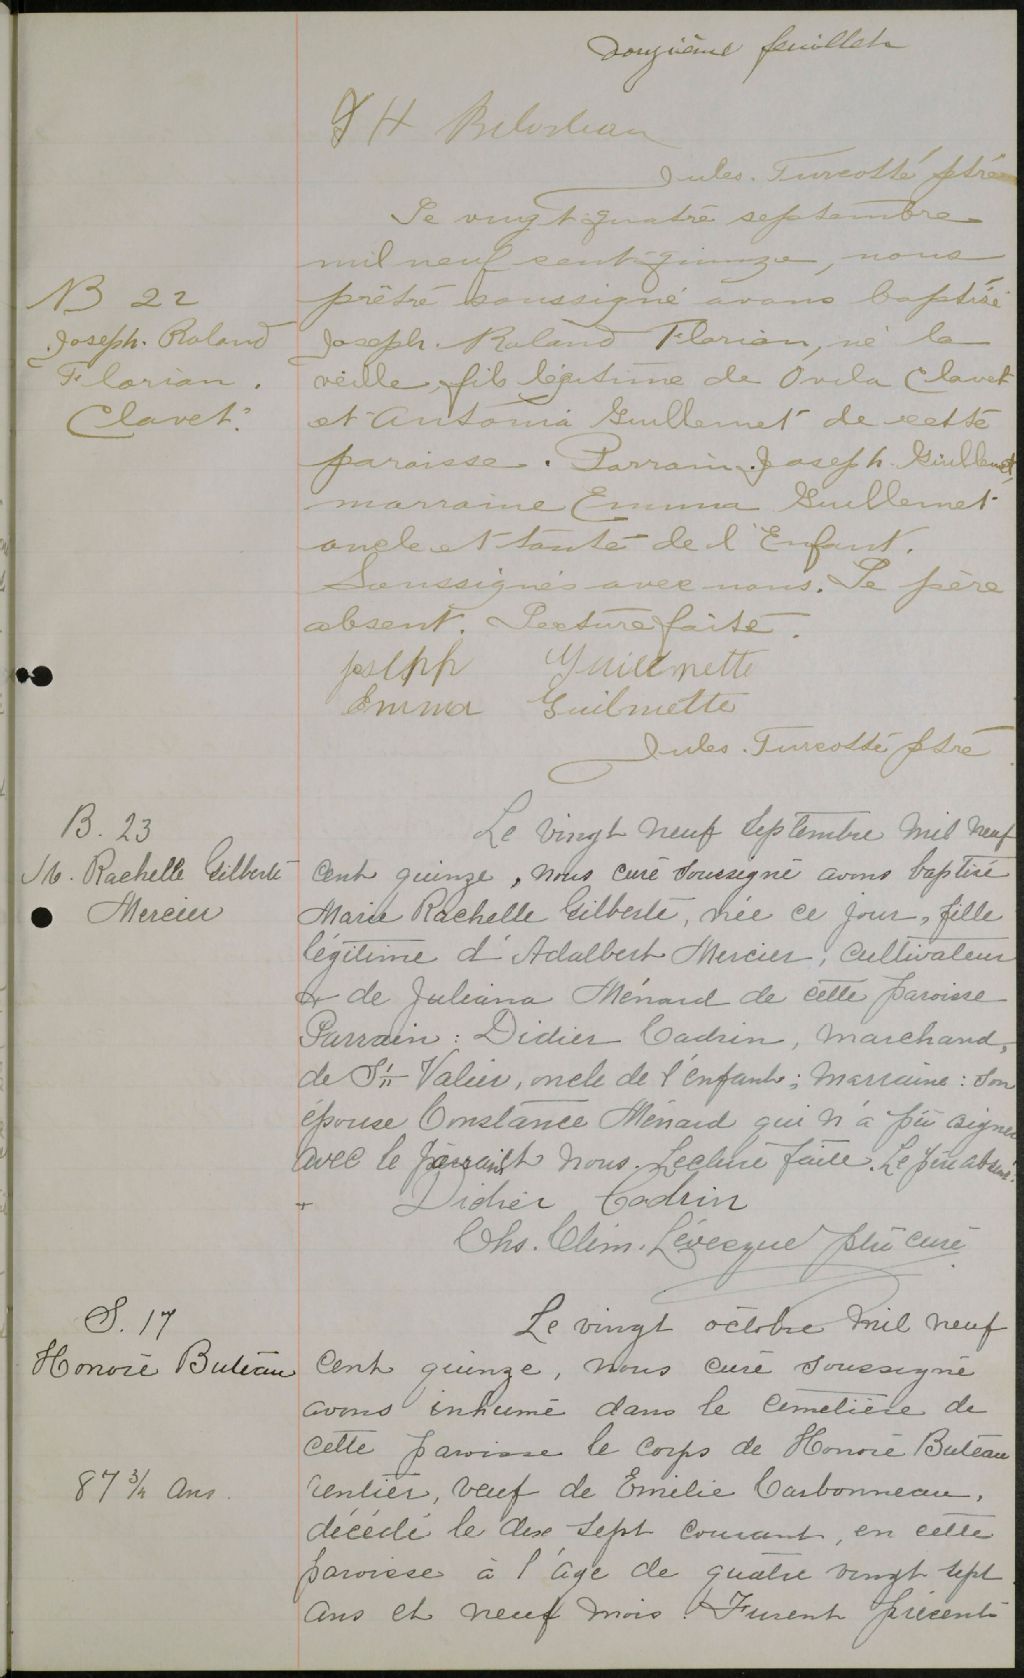 douzième feuillet
J H Bilodeau
Jules. Turcotte ptre
Le vingt-quatre septembre
mil neuf cent-quinze, nous
prêtre soussigné avons baptisé
NB 22
Joseph. Roland
Florian.
Clavet.
Joseph. Roland Florian, né la
veille, fils légitime de Ovila Clavet
et Antonia Guillemet de cette
paroisse. Parrain Joseph Guillemet,
marraine Emma Guillemet
oncle et tante de l'Enfant.
Soussignés avec nous. Le père
absent. Lecture faite.
Joseph Guillmette
Emma Guilmette
Jules. Turcotte ptre
B. 23
M. Rachelle Gilberte
Mercier
Le vingt neuf Septembre mil neuf
cent quinze, nous curé soussigné avons baptisé
Marie Rachelle Gilberte, née ce jour, fille
légitime d'Adalbert Mercier, cultivateur
& de Juliana Ménard de cette paroisse
Parrain : Didier Cadrin, marchand,
de St Valier, oncle de l'enfant; marraine : son
épouse Constance Ménard qui n'a pu signer
avec le parrain & nous. Lecture faite. Le père absent.
Didier Cadrin
Chs. Clém. Lévecque ptre curé
S. 17
Honoré Buteau
87 3/4 Ans.
Le vingt octobre mil neuf
cent quinze, nous curé soussigné
avons inhumé dans le cimetière de
cette paroisse le corps de Honoré Buteau
rentier, veuf de Emélie Carbonneau,
décédé le dix sept courant, en cette
paroisse à l'âge de quatre vingt sept
ans et neuf mois. Furent présents